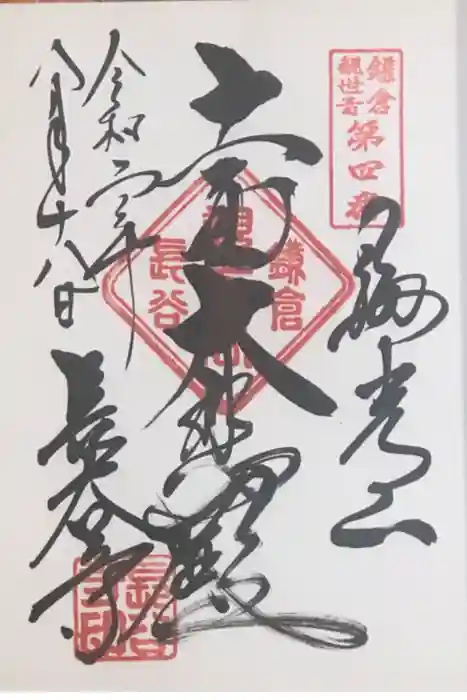 鎌倉
観世音
第四番
海光山
十一面大悲殿
鎌倉
長谷
令和二年
八月十八日
長谷寺